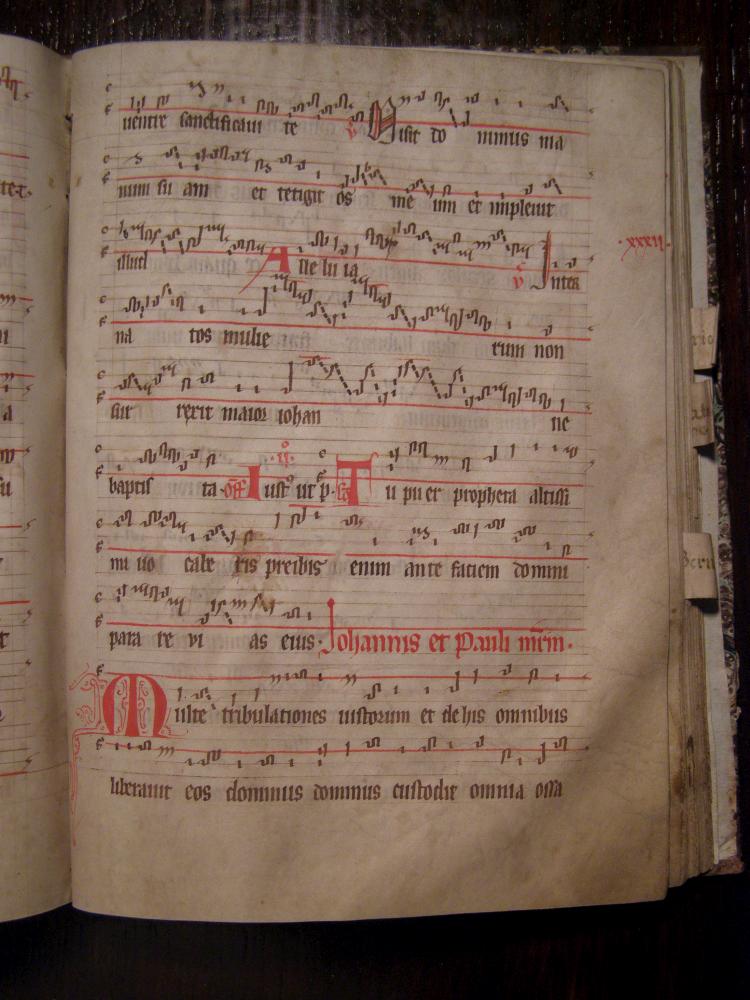 uentre sanctificaui te V Misit do minus ma
num su am et tetigit os me um et impleuit
illud Alle lu ia V Inter
xxxii
na tos mulie rum non
sur rexit maior iohan ne
baptis ta off Iust ut p Co Tu puer propheta altissi
mi uo cabe ris preibis enim ante faciem domini
para re vi as eius Johannis et Pauli mrm
Multe tribulationes iustorum et de his omnibus
liberauit eos dominus dominus custodit omnia ossa